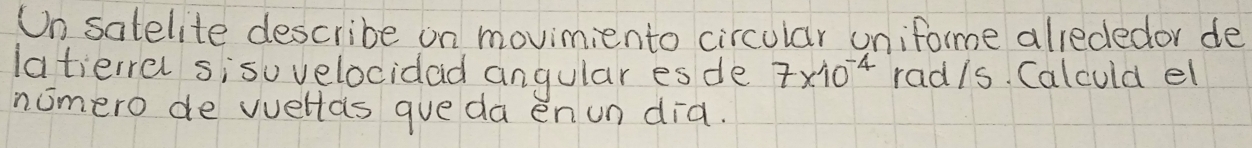 Un satelite describe un movimiento circular uniforme alrededor de
la tierra si su velocidad angular es de 7x10⁻⁴ rad/s. Calcula el
número de vueltas que da en un día.